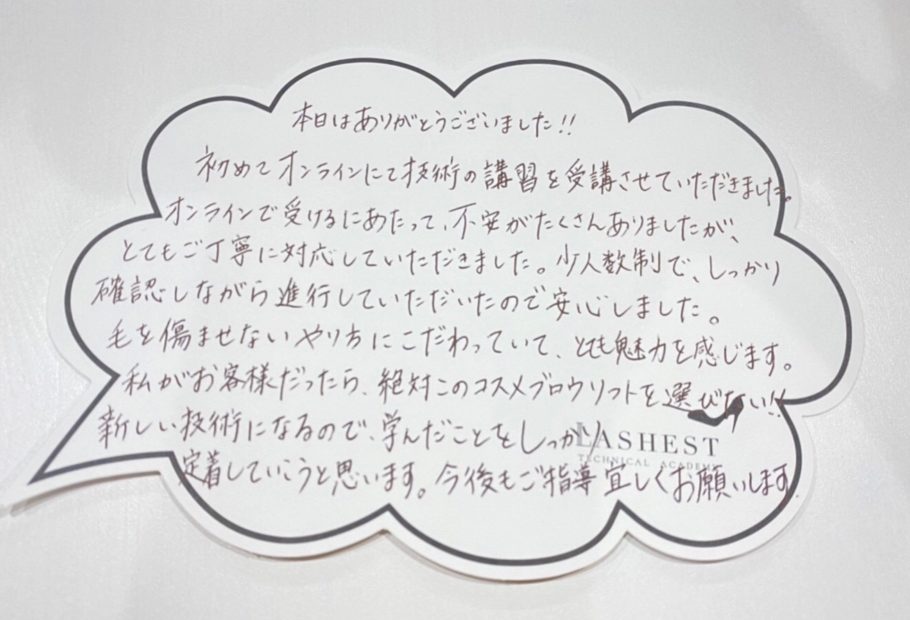 本日はありがとうございました!!
初めてオンラインにて技術の講習を受講させていただきました。
オンラインで受けるにあたって、不安がたくさんありましたが、
とてもご丁寧に対応していただきました。少人数制で、しっかり
確認しながら進行していただいたので安心しました。
毛を傷ませないやり方にこだわっていて、とても魅力を感じます。
私がお客様だったら、絶対このコスメブロウリフトを選びたい!!
新しい技術になるので、学んだことをしっかり
LASHEST
TECHNICAL ACADEMY
定着していこうと思います。今後もご指導宜しくお願いします。